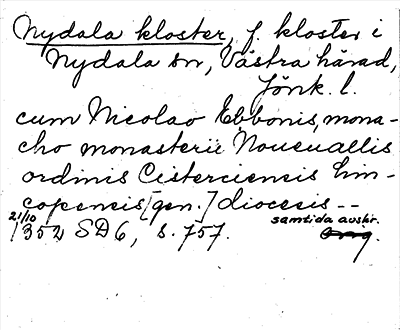 Nydala kloster, f. kloster i
Nydala sn, Västra härad,
Jönk. l.
cum Nicolao Ebbonis, mona-
cho monasterii Noueuallis
ordinis Cisterciensis Lin-
copensis [gen.] diocesis --
21/10 1352 SD 6, s. 757. samtida avskr.
Orig.